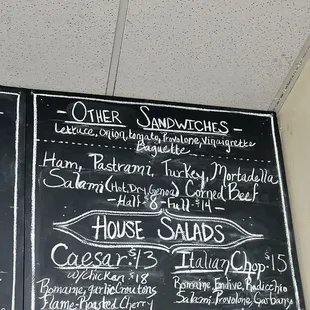 - OTHER SANDWICHES -
Lettuce, Onion, tomato, Provolone, Vinaigrette
Baguette
Ham, Pastrami, Turkey, Mortadella
Salami (Hot, Dry, Genoa) Corned Beef
- Half - 8 - Full - $14 -
HOUSE SALADS
Caesar - $13
w/chicken $18
Romaine, garlic croutons
Flame-Roasted Cherry
Italian Chop - $15
Romaine, Endive, Radicchio
Salami, Provolone, Garbanzo